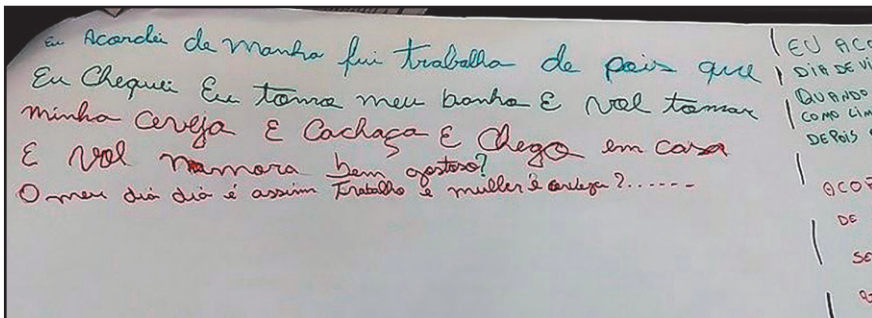 Eu Acordei de manha fui trabalha de pois que
Eu Cheguei Eu tomo meu banho E vol tomar
minha Cerveja E Cachaça E Chego em casa
E vol namora bem gostoso?
O meu dia dia é assim Trabalho é muller é cerveja?......
EU ACO
DIA DE VI
QUANDO
COMO LIM
DEPOIS
ACOR
DE
SE